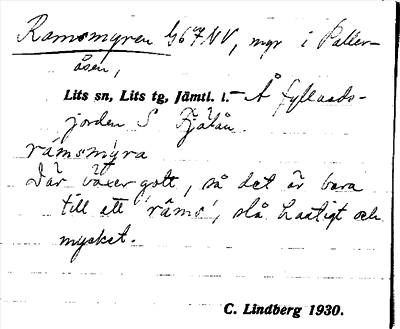 Ramsmyren G67NV, myr i Paller-
åsen,
Lits sn, Lits tg, Jämtl. l. – Å fyllnads-
jorden S Fjälån
råmsmy̍ra
Där växer gott, så det är bara
till att 'råms', slå hastigt och
mycket.
C. Lindberg 1930.